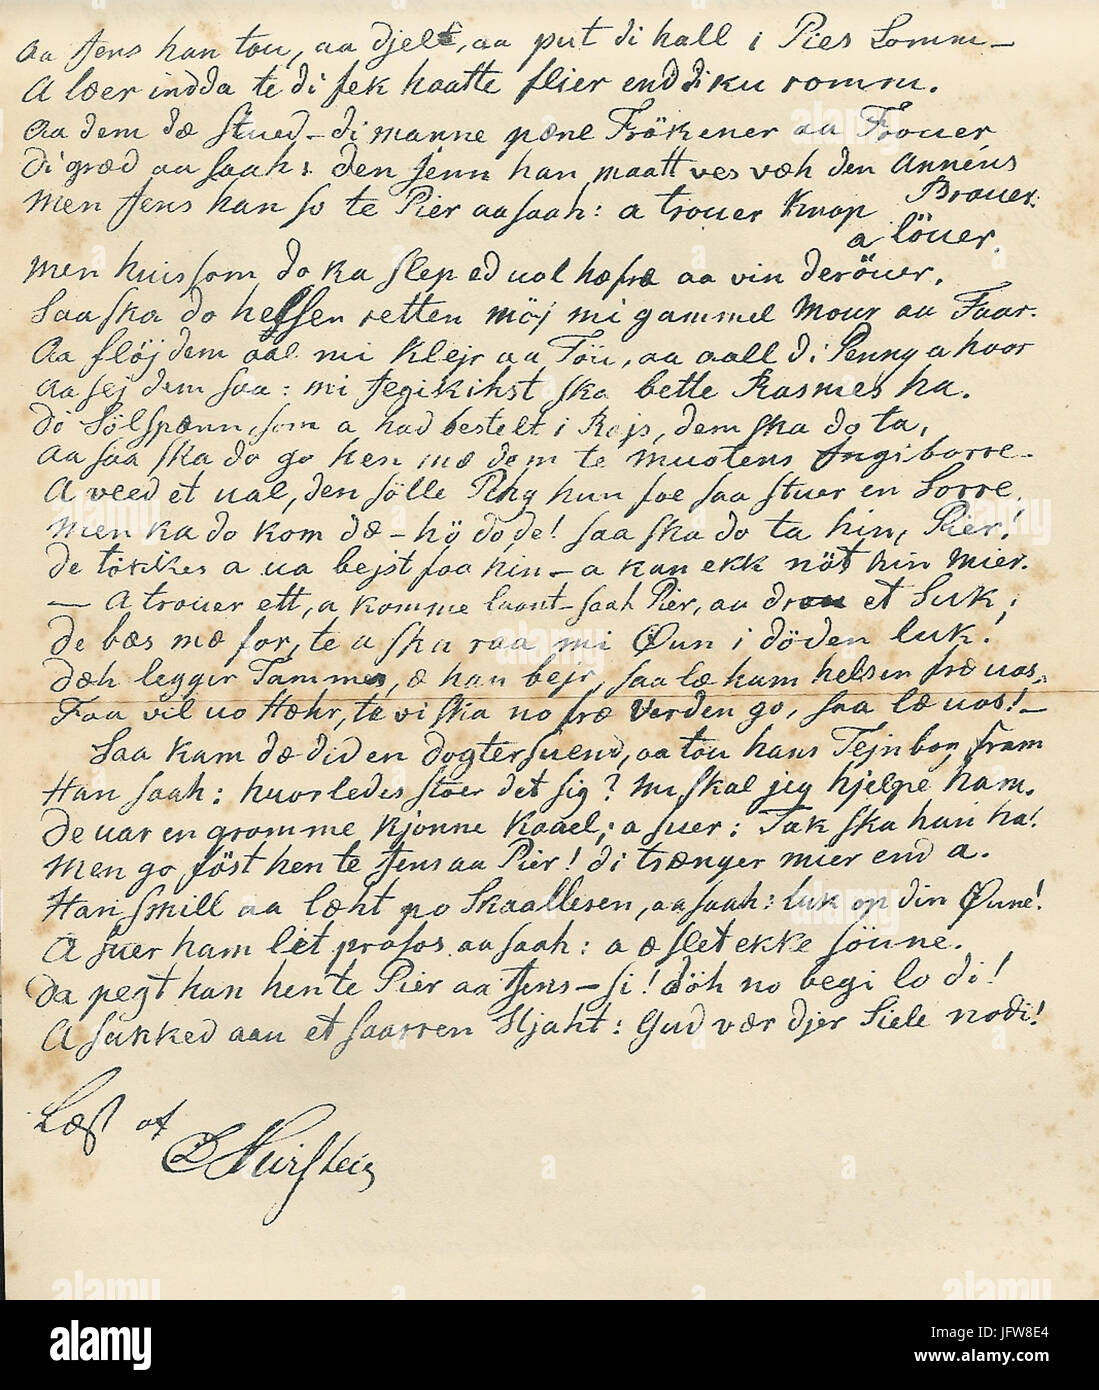 Aa Jens han tou, aa djelt, aa put di hall i Pies Lomm –
A læer indda te di fek haatte flier end di ku romm.
Aa dem dæ stued – di manne pæne Frökener aa Frouer
di græd aa saah: den jenn han maatt ves væh den Annens Brouer.
Men Jens han so te Pier aa saah: a trouer knap a löuer.
Men huissom do ka slep ed ual hæfræ aa vin deröuer.
Saa ska do helsen retten möj mi gammel Mour aa Faar.
Aa fløj dem aal mi Klejr aa Töu, aa aall di Penny a haor
Aa sej dem saa: mi Jegikihst ska bette Rasmes ha.
di Sölspænn, som a had bestelt i Rejs, dem ska do ta,
Aa saa ska do go hen mæ dem te Mustens Ingiborre –
A veed et ual, den sölle Peng hun foe saa stuer en Sorre,
Men ka do kom dæ – hö do, de! saa ska do ta hin, Pier!
De tötkes a ua bejst faa hin – a kan ekk nöt hin mier.
– A trouer ett, a komme laant – saah Pier, aa drou et Suk;
De bæs mæ for, te a ska raa mi Øun i döden luk!
Dæh legger Tammes, æ han bejr, saa læ ham helsen fræ uos –
Faa vil uo Hæhr, te vi ska no fræ Verden go, saa læ uos! –
Saa kam dæ did en dogtersuend, aa tou hans Tejnbog fram
Han saah: huorledes stoer det sig? Nu skal jeg hjelpe ham.
De uar en gromme kjönne Kaael; a suer: Tak ska han ha!
Men go föst hen te Jens aa Pier! di trænger mier end a.
Han smill aa læht po Skaallesen, aa saah: luk op din Øune!
A suer ham let prosos aa saah: a æ slet ekke söune.
Da pegt han hen te Pier aa Jens – si! döh no begi lo di!
A sukked aau et saarren Hjaht: Gud vær djer Siele nodi!
Læst af